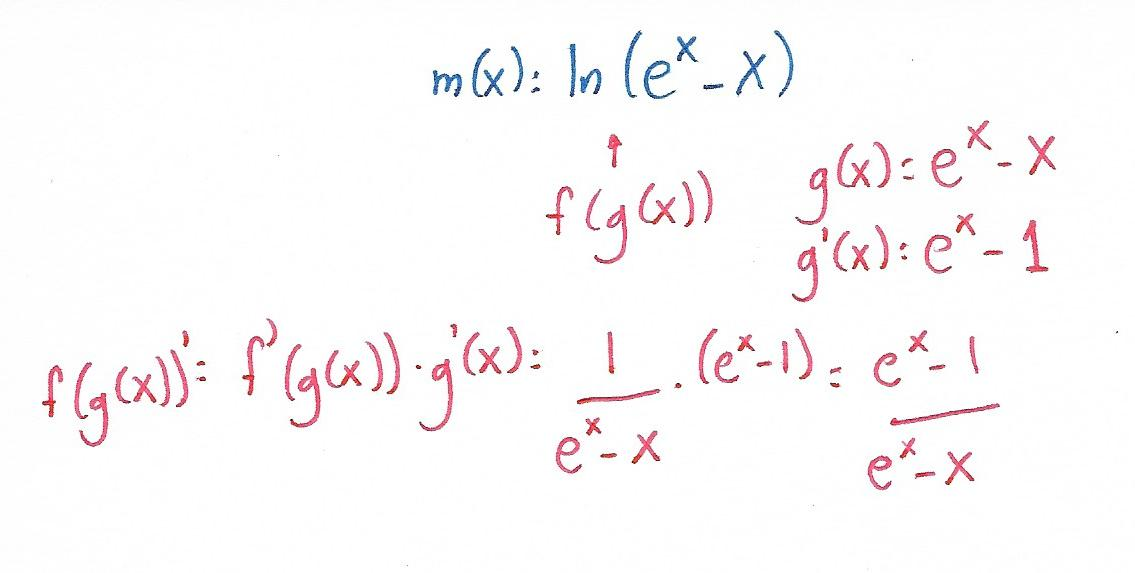 m(x): ln (e^x - x)
↑
f(g(x))
g(x) = e^x - x
g'(x): e^x - 1
f(g(x))' = f'(g(x)) · g'(x) = 1/(e^x - x) · (e^x - 1) = (e^x - 1)/(e^x - x)